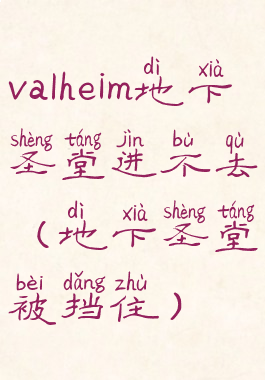 dì xià
valheim地下
shèng táng jìn bù qù
圣堂进不去
dì xià shèng táng
（地下圣堂
bèi dǎng zhù
被挡住）